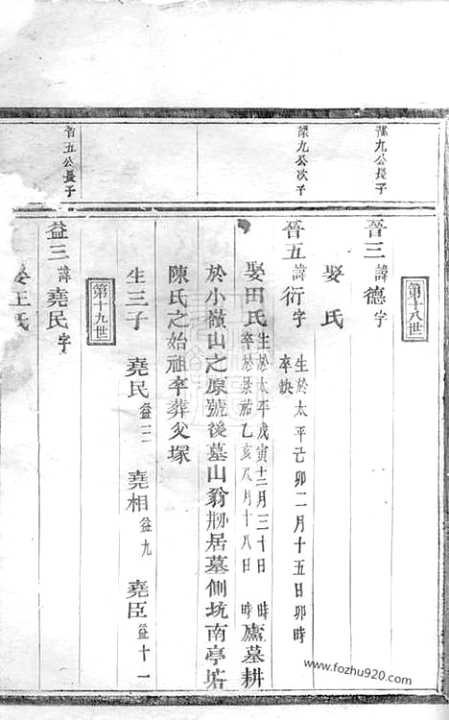 第十八世
梁九公長子
晉三 諱德 字
娶 氏
梁九公次子
晉五 諱衍 字 生於太平己卯二月十五日卯時 卒缺
娶田氏 生於太平戊寅十二月三十日 時 卒於景祐乙亥八月十八日 時 廬墓耕
於小嶺山之原號後墓山翁剏居墓側坑南亭塔
陳氏之始祖卒葬父塚
生三子 堯民 益三 堯相 益九 堯臣 益十一
第十九世
晉五公長子
益三 諱堯民 字
娶王氏
www.fozhu920.com